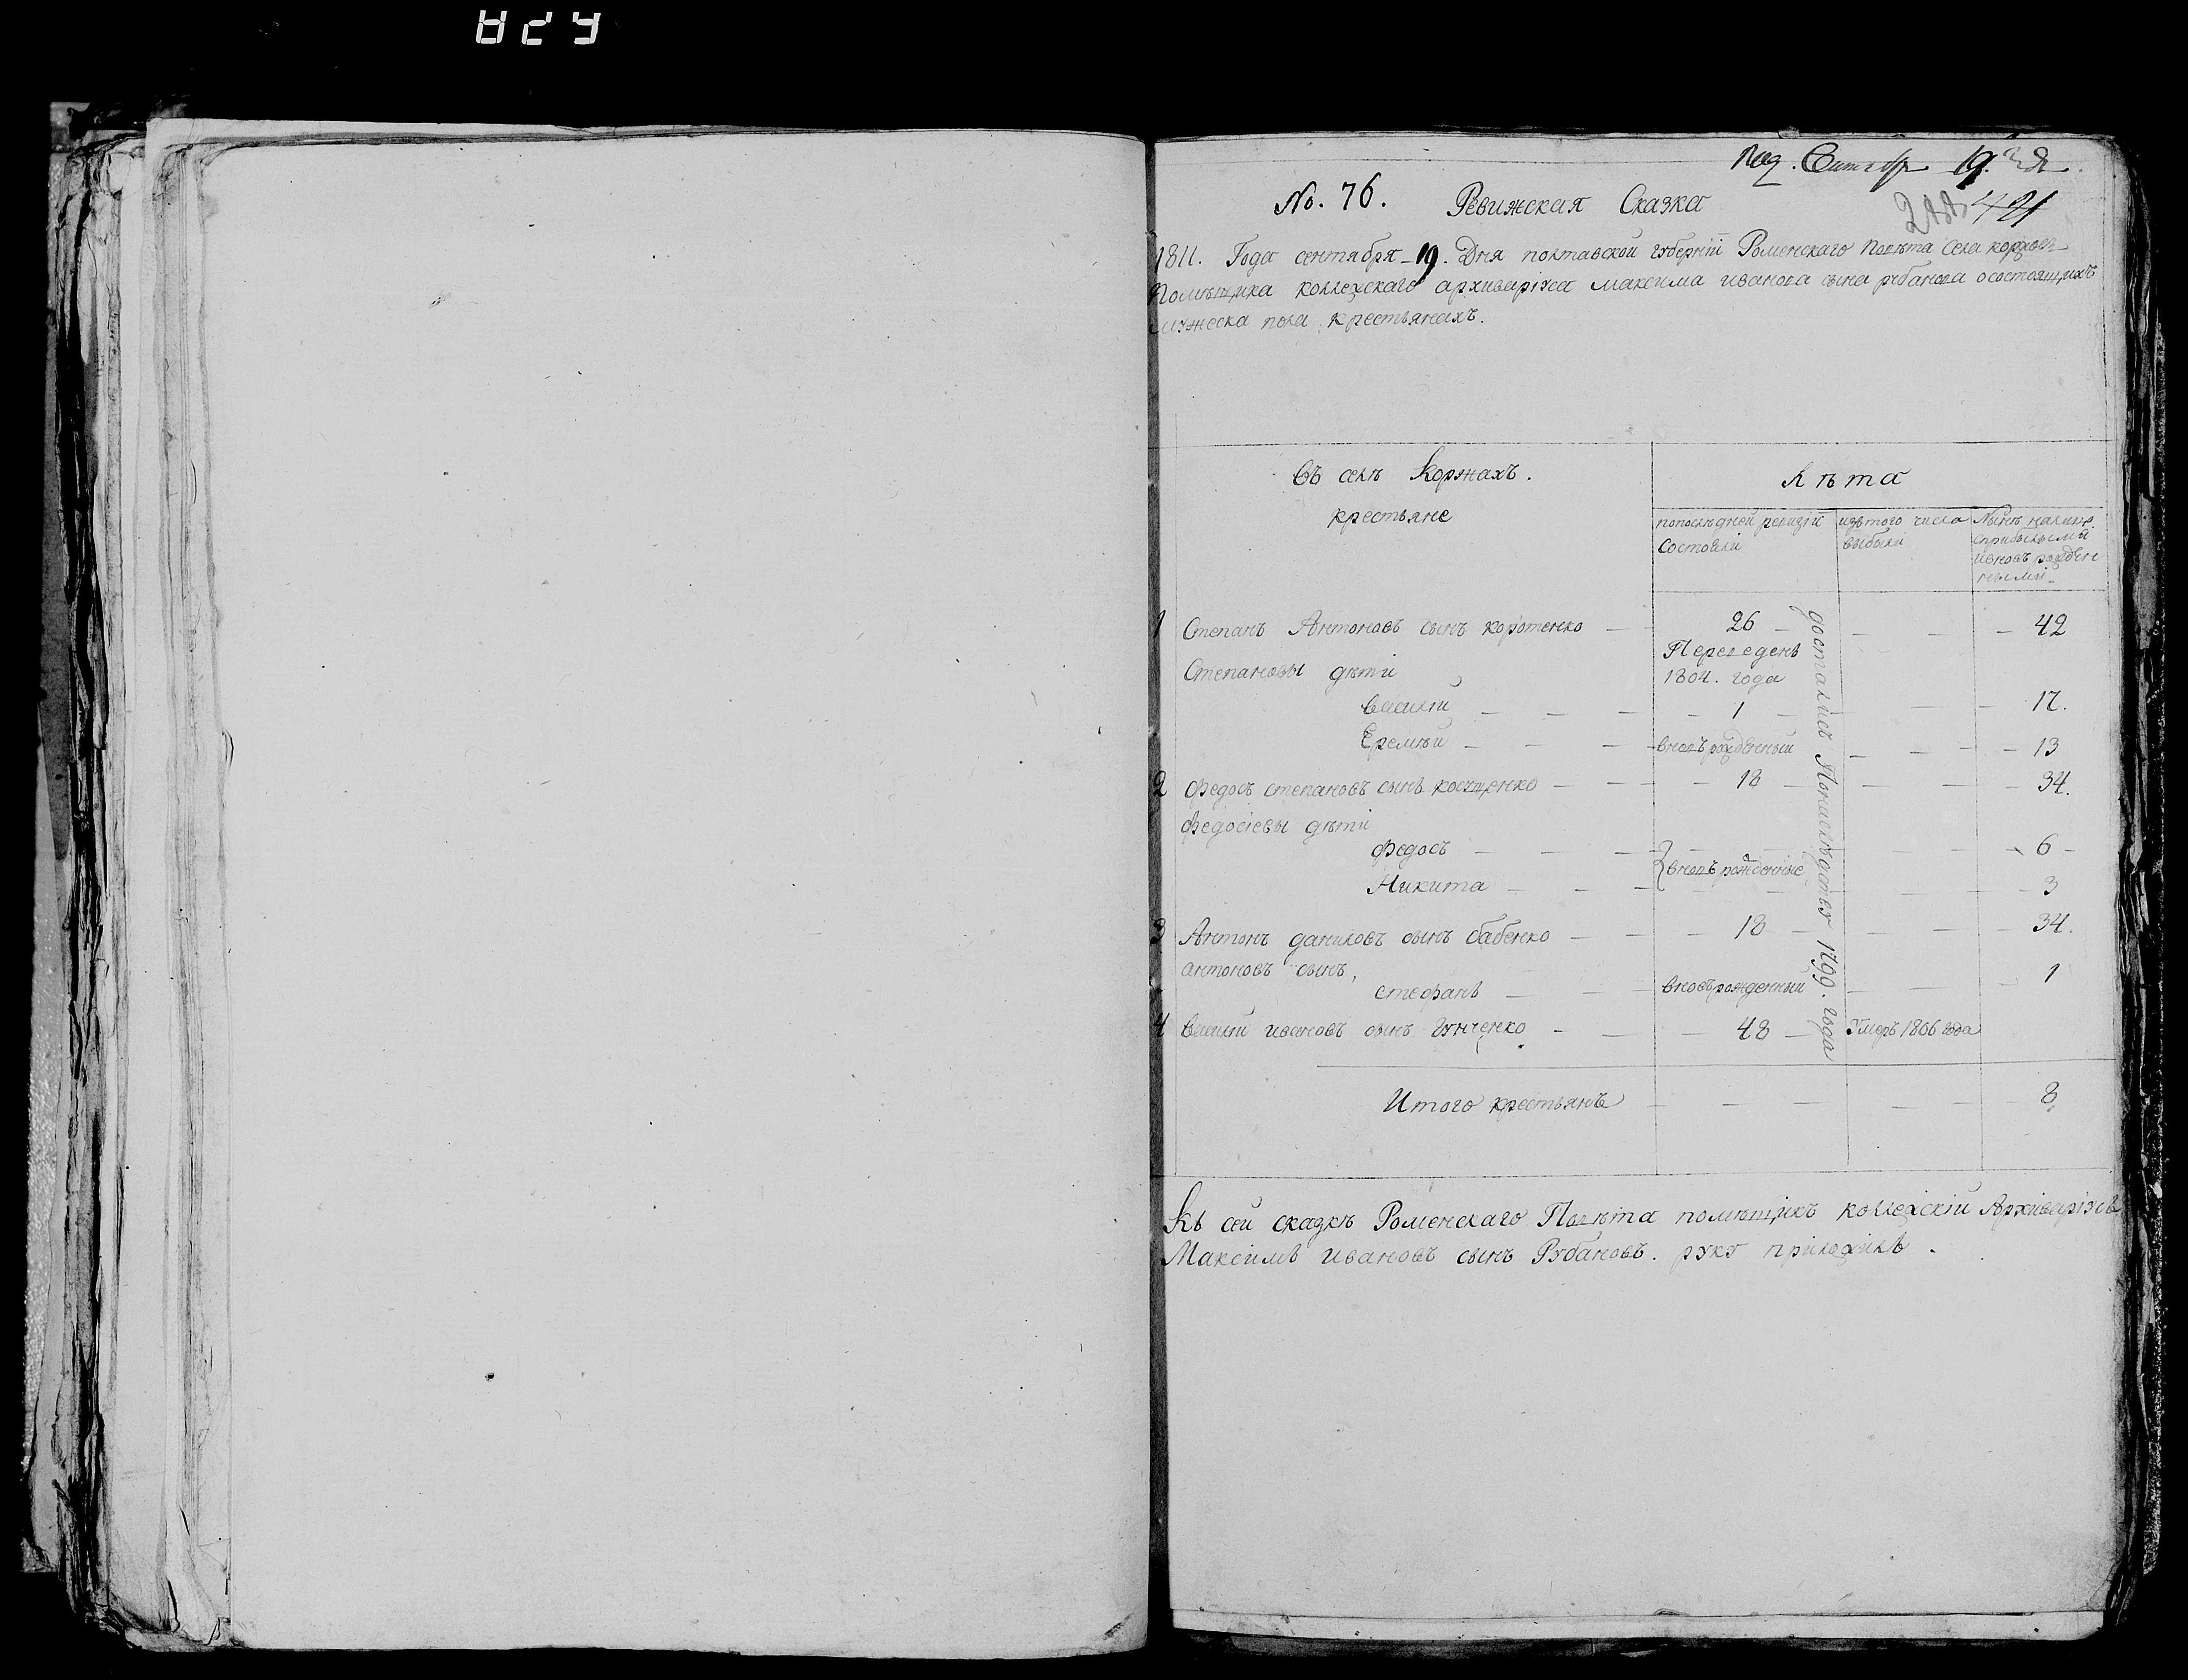 829
Под. Сентября 19. дня
No. 76. Ревижская Сказка
421
1811. Года сентября 19. Дня полтавской губернїи Роменскаго повѣта села коржовъ
Помѣщика коллежскаго архиварїуса максима иванова сына рубанова о состоящихъ
мужеска пола крестьянахъ.
Въ селѣ Коржахъ.
крестьяне
Лѣта
попослѣдней ревизїи состояли
изътого числа выбыли
Нынѣ налицо сприбылыми ивновь рожденными
1 Степанъ Антоновъ сынъ коротенко — 26 — — — 42
Переведенъ 1804. года
Степановы дѣти
Василїй — — — 1 — — 17.
Еремѣй — — — вновь рожденный — — — 13
2 Федосъ степановъ сынъ косущенко — — 18 — — — 34.
Федосїевы дѣти
Федосъ — — — — — 6
вновь рожденные
Никита — — — — — 3
3 Антонъ даниловъ сынъ бабенко — — 18 — — — 34.
антоновъ сынъ,
стефанъ — — вновь рожденный — — — 1
4 Василїй ивановъ сынъ гунченко — — 48 — Умеръ 1806 года
достались Понаслѣдству 1799. года
Итого крестьянъ — — — — — 8
Къ сей сказкѣ Роменскаго Повѣта помѣщикъ коллежскїй Архиварїусъ
Максимъ ивановъ сынъ Рубановъ. руку приложилъ.